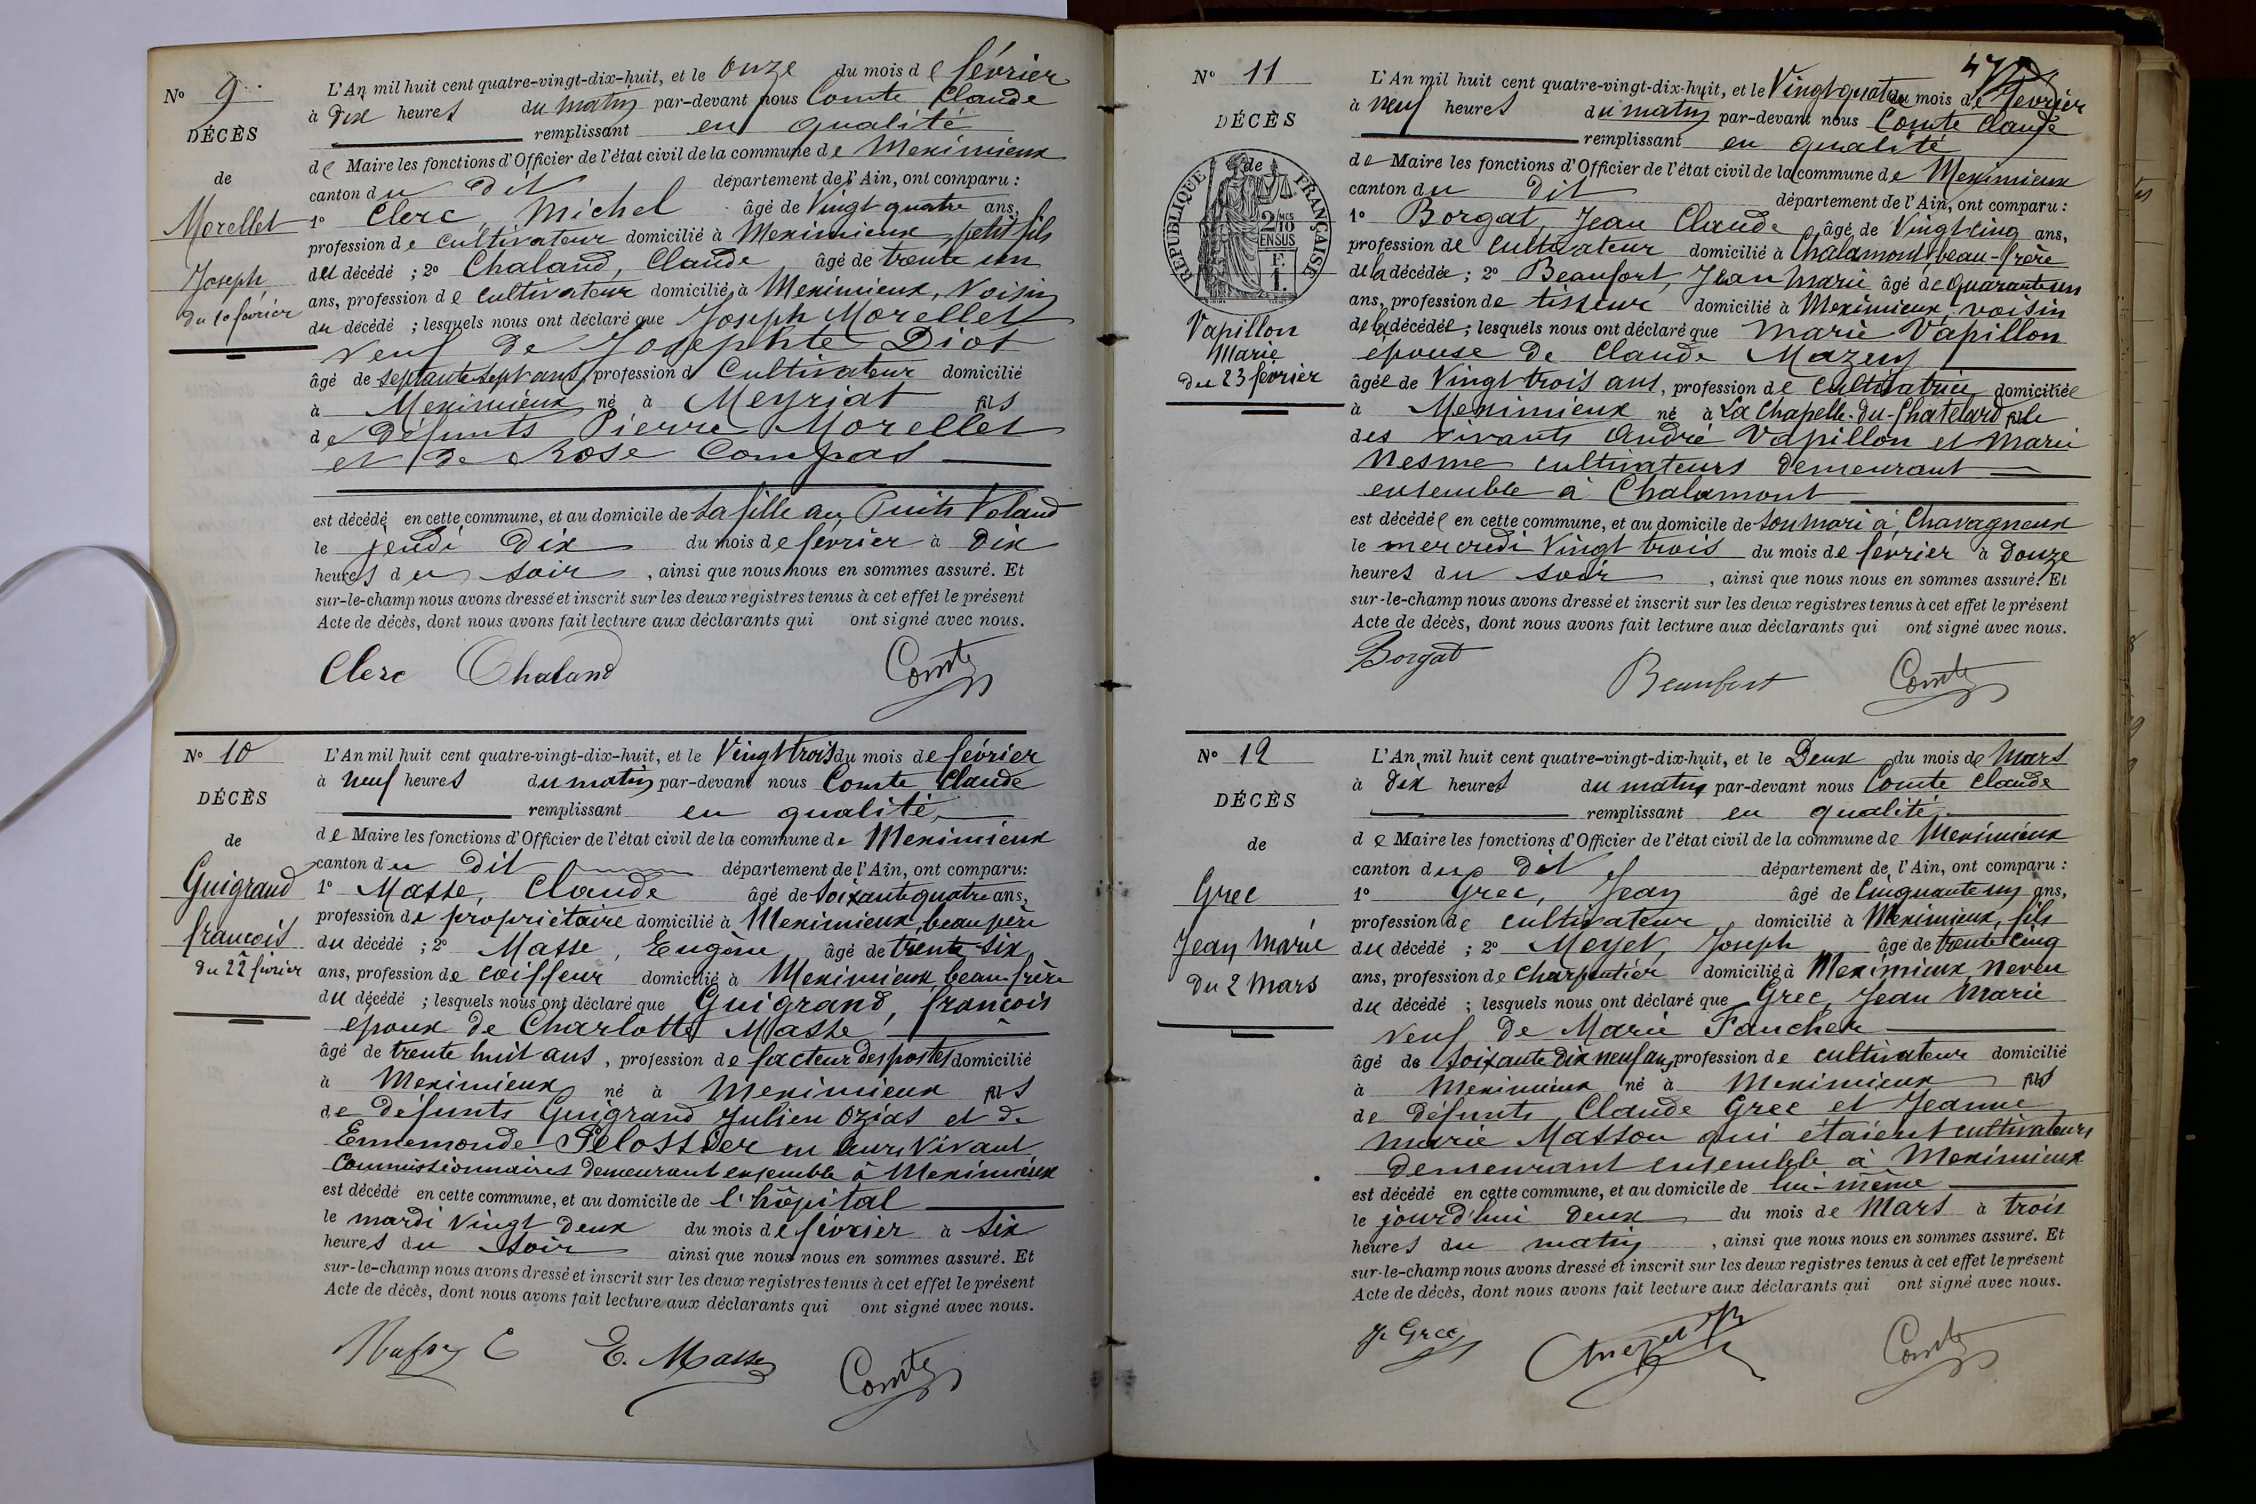 N° 9
DÉCÈS
de
Morellet
Joseph
du 10 février
L'An mil huit cent quatre-vingt-dix-huit, et le onze du mois de février
à dix heures du matin par-devant nous Comte Claude
remplissant en qualité
de Maire les fonctions d'Officier de l'état civil de la commune de Meximieux
canton du dit département de l'Ain, ont comparu :
1° Clerc, Michel âgé de Vingt quatre ans,
profession de cultivateur domicilié à Meximieux, petit fils
du décédé ; 2° Chaland, Claude âgé de trente un
ans, profession de cultivateur domicilié à Meximieux, Voisin
du décédé ; lesquels nous ont déclaré que Joseph Morellet
Veuf de Josephte Diot
âgé de septante sept ans, profession d Cultivateur domicilié
à Meximieux né à Meyriat fils
de défunts Pierre Morellet
et de Rose Compas
est décédé en cette commune, et au domicile de sa fille au Puits Voland
le jeudi dix du mois de février à dix
heures du soir, ainsi que nous nous en sommes assuré. Et
sur-le-champ nous avons dressé et inscrit sur les deux registres tenus à cet effet le présent
Acte de décès, dont nous avons fait lecture aux déclarants qui ont signé avec nous.
Clerc Chaland Comte
N° 10
DÉCÈS
de
Guigrand
françois
du 22 février
L'An mil huit cent quatre-vingt-dix-huit, et le Vingt trois du mois de février
à neuf heures du matin par-devant nous Comte Claude
remplissant en qualité
de Maire les fonctions d'Officier de l'état civil de la commune de Meximieux
canton du dit département de l'Ain, ont comparu:
1° Masse, Claude âgé de soixante quatre ans,
profession de propriétaire domicilié à Meximieux, beau père
du décédé ; 2° Masse, Eugène âgé de trente six
ans, profession de coiffeur domicilié à Meximieux, beau-frère
du décédé ; lesquels nous ont déclaré que Guigrand, françois
époux de Charlotte Masse
âgé de trente huit ans, profession de facteur des postes domicilié
à Meximieux né à Meximieux fils
de défunts Guigrand Julien Ozias et de
Ennemonde Pelossier en leurs Vivant
Commissionnaires demeurant ensemble à Meximieux
est décédé en cette commune, et au domicile de l'hôpital
le mardi Vingt deux du mois de février à six
heures du soir ainsi que nous nous en sommes assuré. Et
sur-le-champ nous avons dressé et inscrit sur les deux registres tenus à cet effet le présent
Acte de décès, dont nous avons fait lecture aux déclarants qui ont signé avec nous.
E. Masse Comte
N° 11
DÉCÈS
de
RÉPUBLIQUE FRANÇAISE
2/10 MES EN SUS
F. 1.
Vapillon
Marie
du 23 février
L'An mil huit cent quatre-vingt-dix-huit, et le Vingt quatre du mois de février
à neuf heures du matin par-devant nous Comte Claude
remplissant en qualité
de Maire les fonctions d'Officier de l'état civil de la commune de Meximieux
canton du dit département de l'Ain, ont comparu :
1° Borgat, Jean Claude âgé de Vingt cinq ans,
profession de cultivateur domicilié à Chalamont, beau-frère
de la décédée ; 2° Beaufort, Jean Marie âgé de quarante un
ans, profession de tisseur domicilié à Meximieux, voisin
de la décédée ; lesquels nous ont déclaré que Marie Vapillon
épouse de Claude Mazeuy
âgée de Vingt trois ans, profession de cultivatrice domiciliée
à Meximieux né à La Chapelle-du-Chatelard fille
des vivants André Vapillon et Marie
Nesme cultivateurs demeurant
ensemble à Chalamont
est décédée en cette commune, et au domicile de son mari à Chavagneux
le mercredi Vingt trois du mois de février à douze
heures du soir, ainsi que nous nous en sommes assuré. Et
sur-le-champ nous avons dressé et inscrit sur les deux registres tenus à cet effet le présent
Acte de décès, dont nous avons fait lecture aux déclarants qui ont signé avec nous.
Borgat Beaufort Comte
N° 12
DÉCÈS
de
Grec
Jean Marie
du 2 Mars
L'An mil huit cent quatre-vingt-dix-huit, et le Deux du mois de Mars
à dix heures du matin par-devant nous Comte Claude
remplissant en qualité
de Maire les fonctions d'Officier de l'état civil de la commune de Meximieux
canton du dit département de l'Ain, ont comparu :
1° Grec, Jean âgé de cinquante un ans,
profession de cultivateur domicilié à Meximieux, fils
du décédé ; 2° Meyet, Joseph âgé de trente cinq
ans, profession de charpentier domicilié à Meximieux, neveu
du décédé ; lesquels nous ont déclaré que Grec, Jean Marie
Veuf de Marie Faucher
âgé de soixante dix neuf ans, profession de cultivateur domicilié
à Meximieux né à Meximieux fils
de défunts Claude Grec et Jeanne
Marie Masson qui étaient cultivateurs
demeurant ensemble à Meximieux
est décédé en cette commune, et au domicile de lui-même
le jourd'hui deux du mois de Mars à trois
heures du matin, ainsi que nous nous en sommes assuré. Et
sur-le-champ nous avons dressé et inscrit sur les deux registres tenus à cet effet le présent
Acte de décès, dont nous avons fait lecture aux déclarants qui ont signé avec nous.
Grec Comte